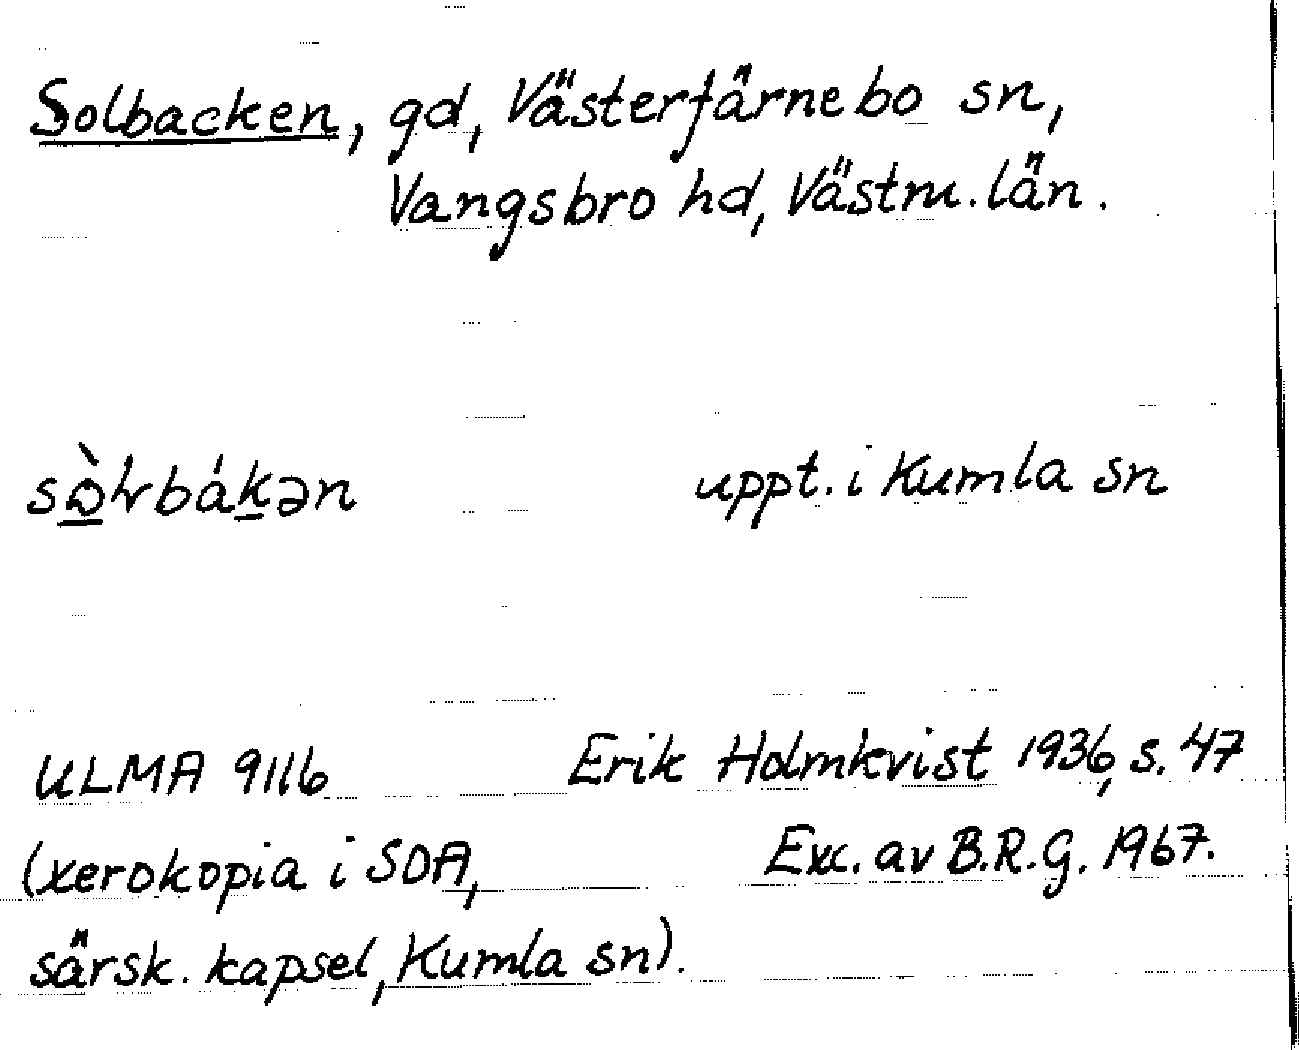 Solbacken, gd, Västerfärnebo sn,
Vangsbro hd, Västm. län.
uppt. i Kumla sn
ULMA 9116 Erik Holmkvist 1936, s. 47
(xerokopia i SOA, Exc. av B.R.G. 1967.
särsk. kapsel, Kumla sn).